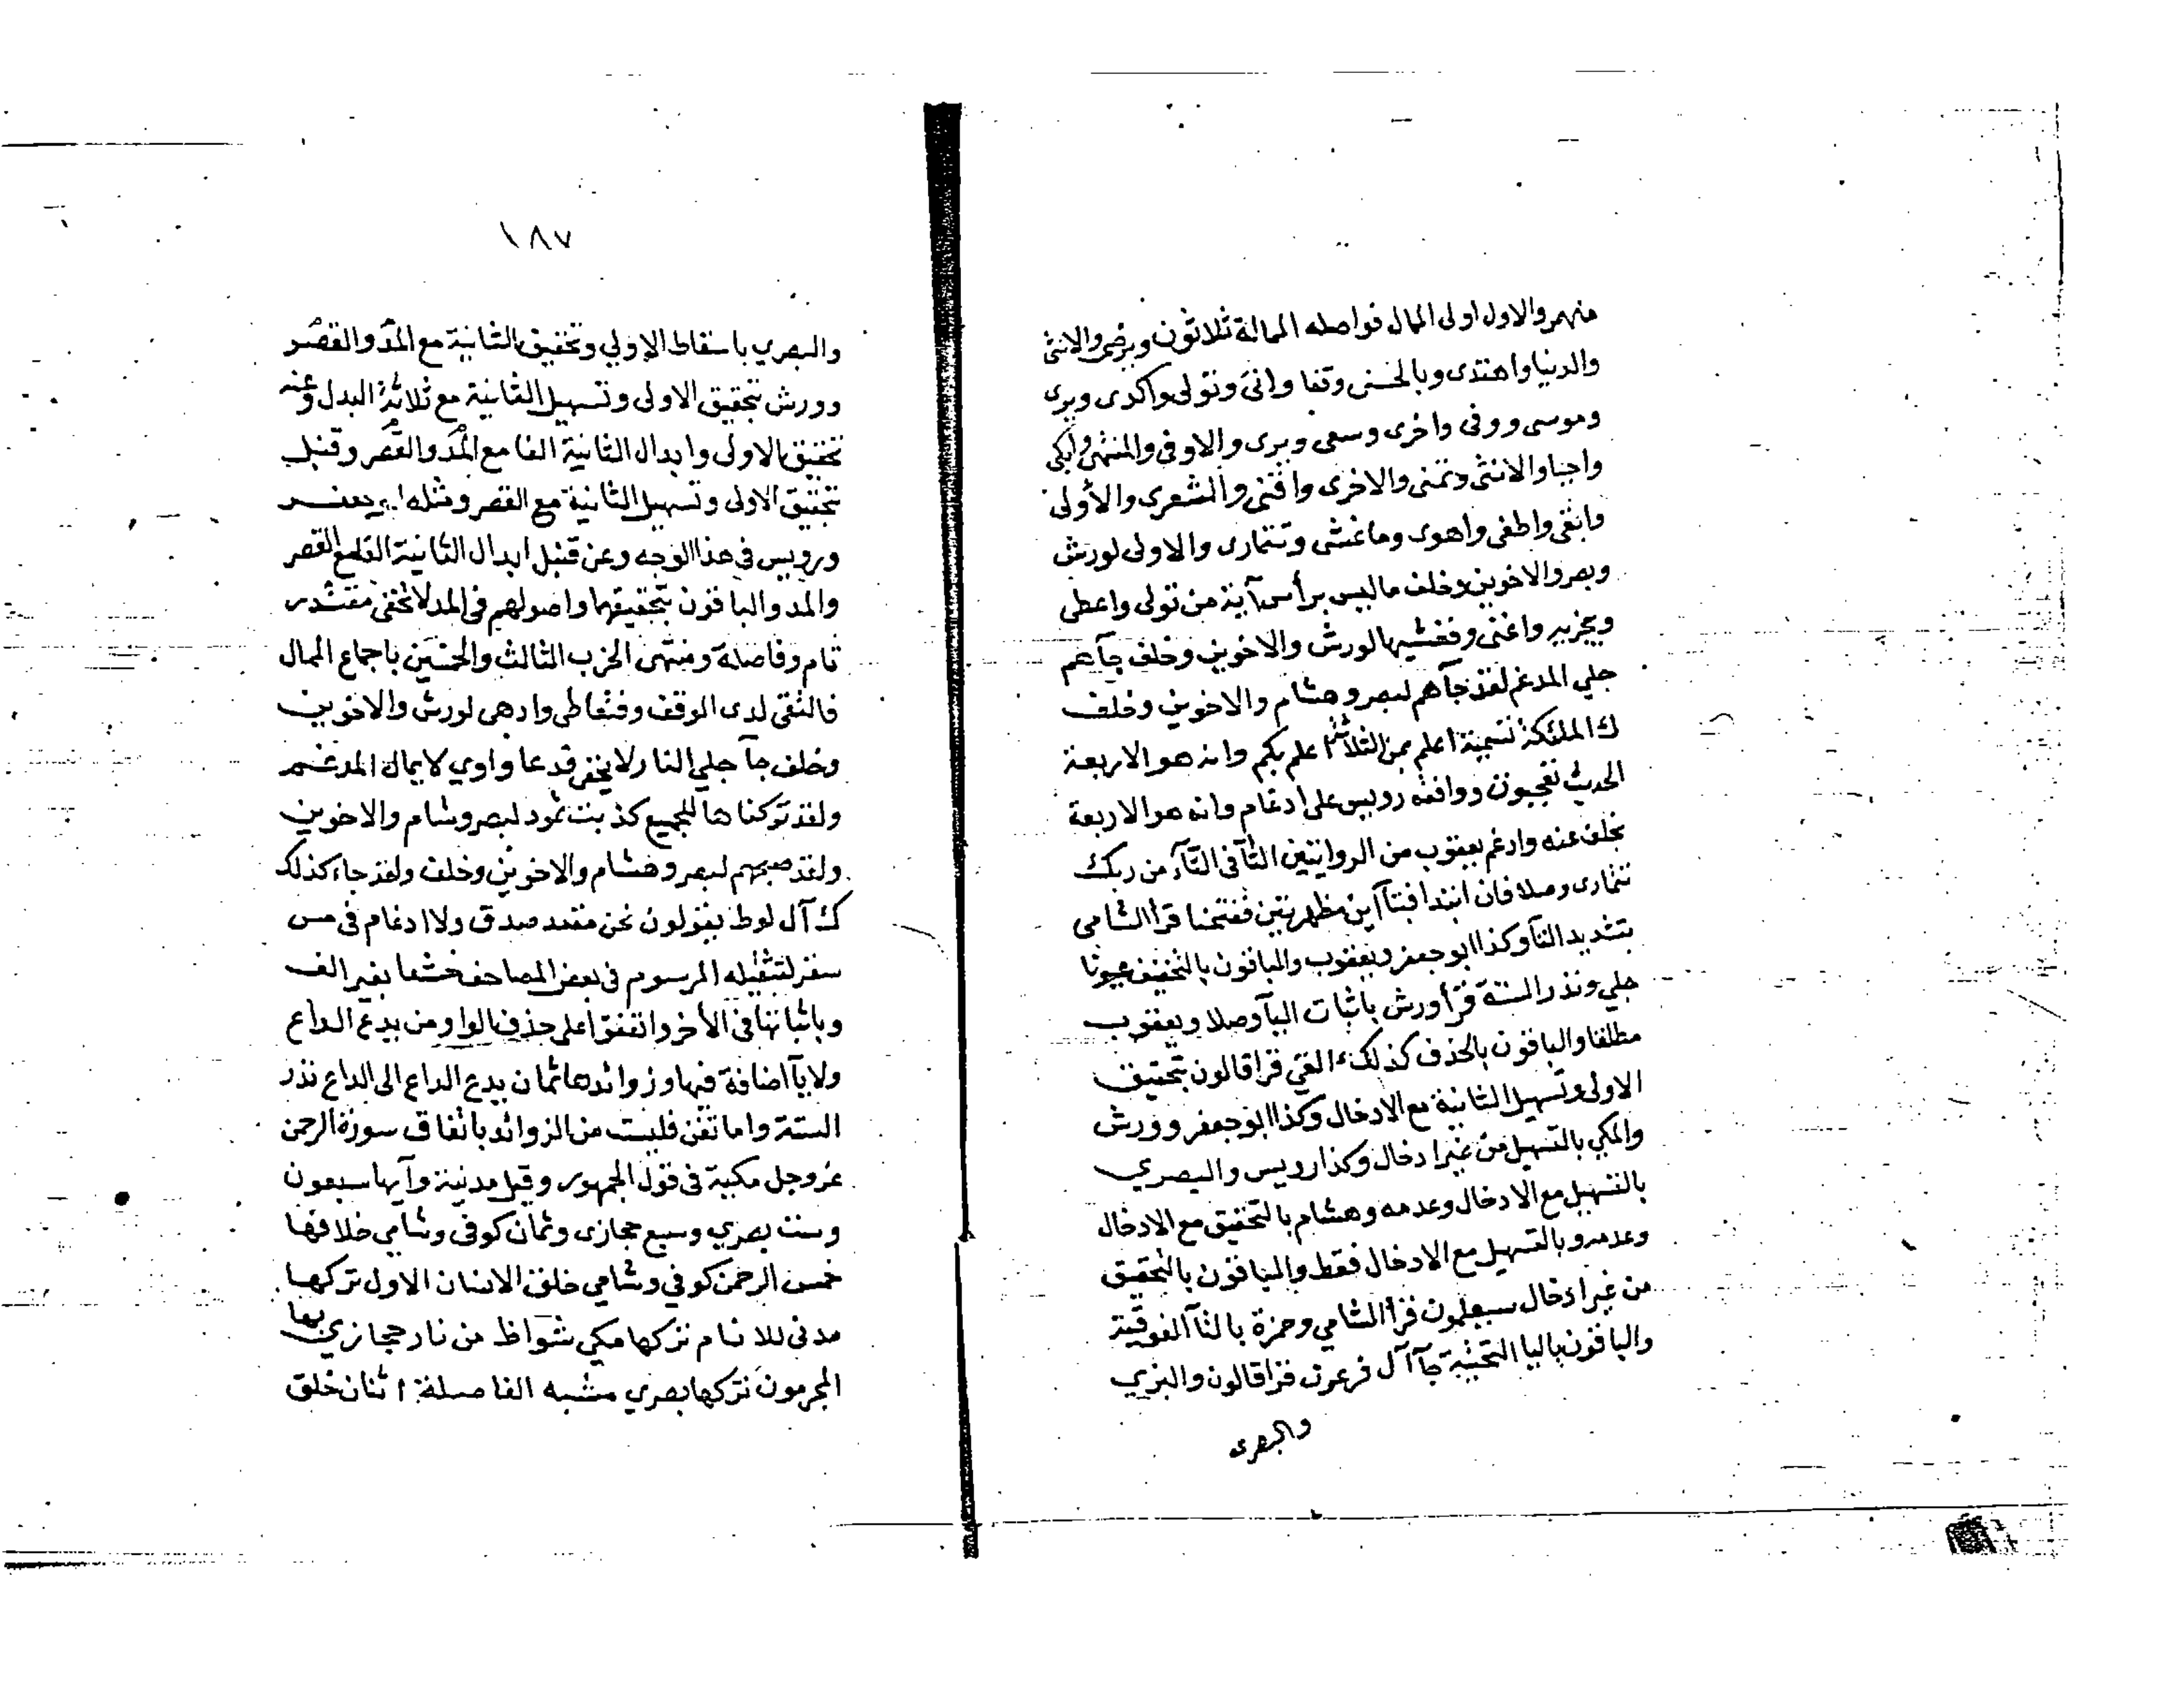 منهمر والاول اولى الممال فواصله الممالة ثلاثون ويرضى والانثى
والدنيا واهتدى وبالحسنى وقفا واتى وتولى واكدى ويرى
وموسى ووفى واخرى وسعى ويرى والاوفى والمنتهى وابكى
واحيا والانثى وتمنى والاخرى واقنى والشعرى والأولى
وابقى واطغى واهوى وما غشى وتتمارى والاولى لورش
وبصر والاخوين وخلف ما ليس برأس آية من تولى واعطى
ويجزيه واغنى وفغشيها لورش والاخوين وخلف جآهم
جلي المدغم لقد جآهم لبصر وهشام والاخوين وخلف
ك الملئكة تسمية اعلم بمن الثلاثة اعلم بكم وانه هو الاربعة
الحديث تعجبون ووافقه رويس على ادغام وانه هو الاربعة
بخلف عنه وادغم يعقوب من الروايتين التآ في التآء من ربك
تتمارى وصلا فان ابتدا فبتآاين مظهرتين ففتحنا قرا الشامى
بتشديد التآ وكذا ابو جعفر ويعقوب والباقون بالتخفيف عيونا
جلي ونذر الستة قرأ ورش باثبات اليآ وصلا ويعقوب
مطلقا والباقون بالحذف كذلك ءالقي قرا قالون بتحقيق
الاولى وتسهيل الثانية مع الادخال وكذا ابو جعفر وورش
والمكي بالتسهيل من غير ادخال وكذا رويس والبصري
بالتسهيل مع الادخال وعدمه وهشام بالتحقيق مع الادخال
وعدمه وبالتسهيل مع الادخال فقط والباقون بالتحقيق
من غير ادخال سيعلمون قرأ الشامي وحمزة بالتآ الفوقية
والباقون باليا التحتية جآ آل فرعون قرا قالون والبزي
والبصرى
١٨٧
والبصري باسقاط الاولي وتحقيق الثانية مع المد والقصر
وورش بتحقيق الاولى وتسهيل الثانية مع ثلاثة البدل وعنه
تحقيق الاولى وابدال الثانية الفا مع المد والقصر وقنبل
بتحقيق الاولى وتسهيل الثانية مع القصر ومثله ابو جعفر
ورويس في هذا الوجه وعن قنبل ابدال الثانية الفا مع القصر
والمد والباقون بتحقيقهما واصولهم في المد لا تخفى مقتدر
تام وفاصلة ومنتهى الحزب الثالث والخمسين باجماع الممال
فالتقى لدى الوقف وفتعاطى وادهى لورش والاخوين
وخلف جآ جلي النار لا يخفى وقد دعا واوي لا يمال المدغم
ولقد تركناها للجميع كذبت ثمود لبصر وشام والاخوين
ولقد صبحهم لبصر وهشام والاخوين وخلف ولقد جاء كذلك
ك آل لوط يقولون نحن مقعد صدق ولا ادغام في مس
سقر لتثقيله المرسوم في بعض المصاحف خشعا بغير الف
وباثباتها في الأخر واتفقوا على حذف الواو من يدع الداع
ولا يآ اضافة فيها وزوائدها ثمان يدع الداع الى الداع نذر
الستة واما تغن فليست من الزوائد باتفاق سورة الرحمن
عز وجل مكية في قول الجمهور وقيل مدنية وآيها سبعون
وست بصري وسبع حجازى وثمان كوفى وشامي خلافها
خمس الرحمن كوفي وشامي خلق الانسان الاول تركها
مدنى للانام تركها مكي شواظ من نار حجازي بها
المجرمون تركها بصري مشبه الفاصلة اثنان خلق